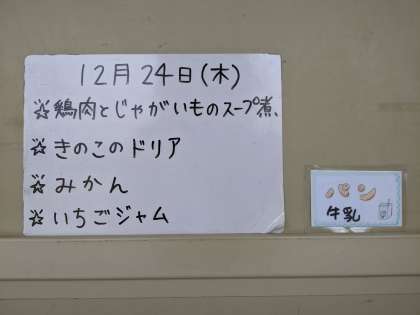 12月24日(木)
☆鶏肉とじゃがいものスープ煮、
☆きのこのドリア
☆みかん
☆いちごジャム
パン
牛乳